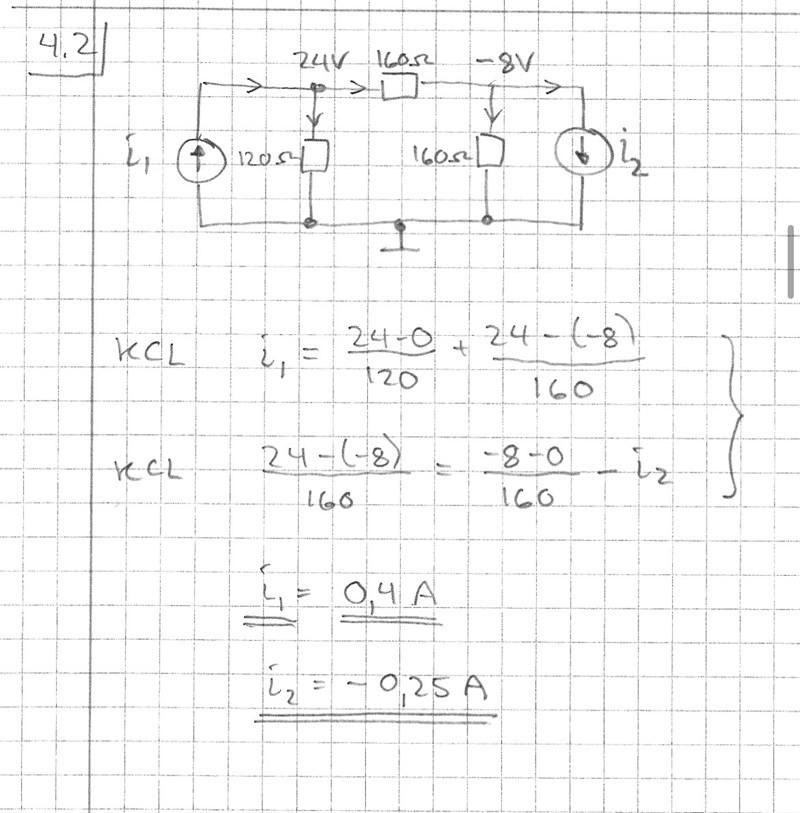 4.2
24V 160Ω -8V
i₁ 120Ω 160Ω i₂
KCL i₁ = (24-0)/120 + (24-(-8))/160
KCL (24-(-8))/160 = (-8-0)/160 - i₂
i₁ = 0,4 A
i₂ = -0,25 A